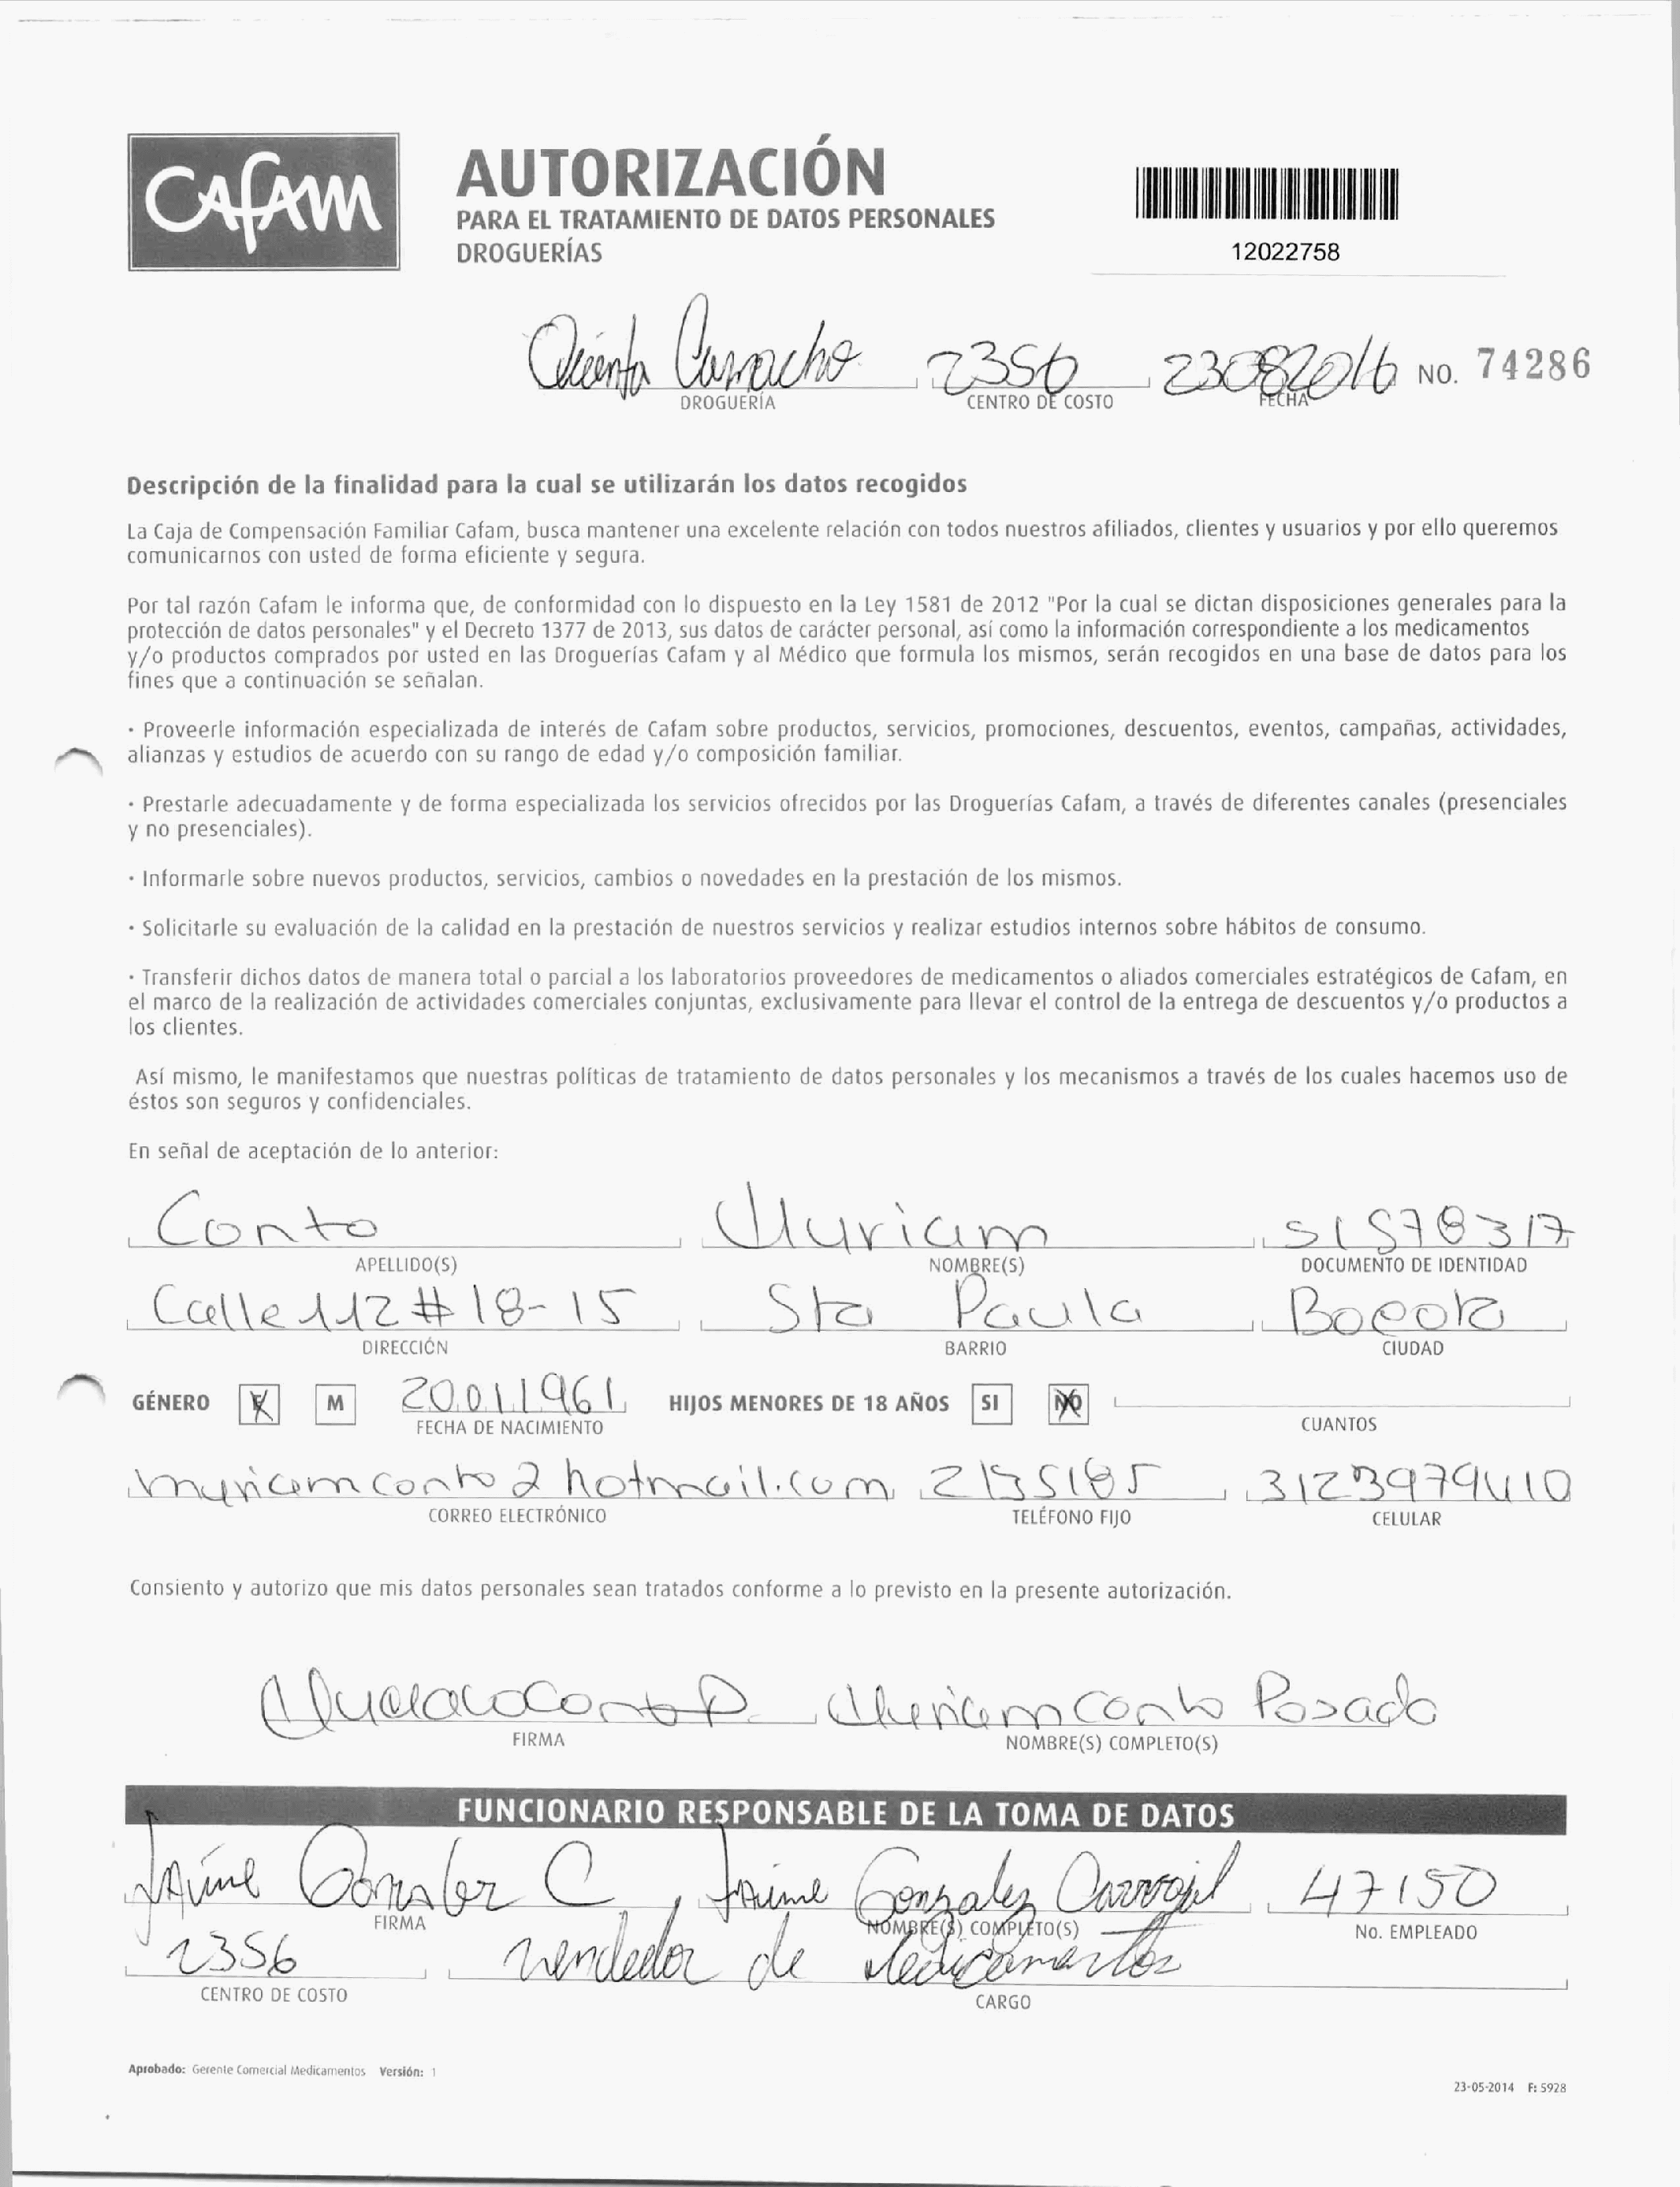 CAFAM
AUTORIZACIÓN
PARA EL TRATAMIENTO DE DATOS PERSONALES
DROGUERÍAS
12022758
Quinta Camacho 2356 23082016 NO. 74286
DROGUERÍA CENTRO DE COSTO FECHA
Descripción de la finalidad para la cual se utilizarán los datos recogidos
La Caja de Compensación Familiar Cafam, busca mantener una excelente relación con todos nuestros afiliados, clientes y usuarios y por ello queremos
comunicarnos con usted de forma eficiente y segura.
Por tal razón Cafam le informa que, de conformidad con lo dispuesto en la Ley 1581 de 2012 "Por la cual se dictan disposiciones generales para la
protección de datos personales" y el Decreto 1377 de 2013, sus datos de carácter personal, así como la información correspondiente a los medicamentos
y/o productos comprados por usted en las Droguerías Cafam y al Médico que formula los mismos, serán recogidos en una base de datos para los
fines que a continuación se señalan.
· Proveerle información especializada de interés de Cafam sobre productos, servicios, promociones, descuentos, eventos, campañas, actividades,
alianzas y estudios de acuerdo con su rango de edad y/o composición familiar.
· Prestarle adecuadamente y de forma especializada los servicios ofrecidos por las Droguerías Cafam, a través de diferentes canales (presenciales
y no presenciales).
· Informarle sobre nuevos productos, servicios, cambios o novedades en la prestación de los mismos.
· Solicitarle su evaluación de la calidad en la prestación de nuestros servicios y realizar estudios internos sobre hábitos de consumo.
· Transferir dichos datos de manera total o parcial a los laboratorios proveedores de medicamentos o aliados comerciales estratégicos de Cafam, en
el marco de la realización de actividades comerciales conjuntas, exclusivamente para llevar el control de la entrega de descuentos y/o productos a
los clientes.
Así mismo, le manifestamos que nuestras políticas de tratamiento de datos personales y los mecanismos a través de los cuales hacemos uso de
éstos son seguros y confidenciales.
En señal de aceptación de lo anterior:
Conto Myriam 51578317
APELLIDO(S) NOMBRE(S) DOCUMENTO DE IDENTIDAD
Calle 112 # 18-15 Sta Paula Bogota
DIRECCIÓN BARRIO CIUDAD
GÉNERO F M 20011961 HIJOS MENORES DE 18 AÑOS SI NO
FECHA DE NACIMIENTO CUANTOS
myriamconto2hotmail.com 3123979410
CORREO ELECTRÓNICO TELÉFONO FIJO CELULAR
Consiento y autorizo que mis datos personales sean tratados conforme a lo previsto en la presente autorización.
Myriam Conto Posada
FIRMA NOMBRE(S) COMPLETO(S)
FUNCIONARIO RESPONSABLE DE LA TOMA DE DATOS
Jaime Gonzalez C Jaime Gonzalez Carvajal 47150
FIRMA NOMBRE(S) COMPLETO(S) No. EMPLEADO
2356 vendedor de Medicamentos
CENTRO DE COSTO CARGO
Aprobado: Gerente Comercial Medicamentos Versión: 1
23-05-2014 F: 5928